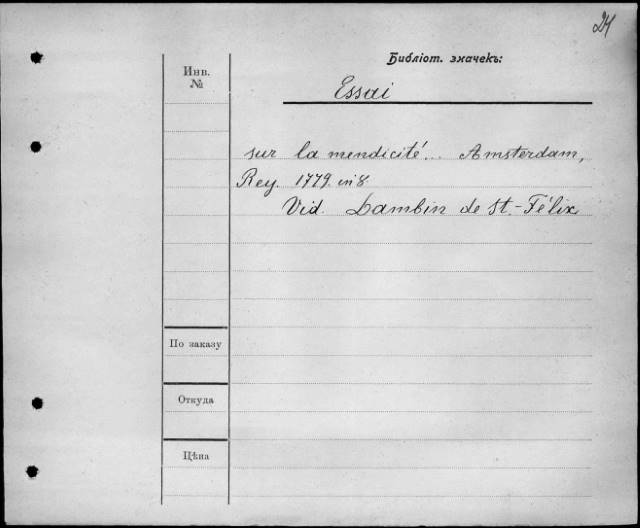 24
Библіот. значекъ:
Инв.
№
Essai
sur la mendicité... Amsterdam,
Rey. 1779. in 8.
Vid. Lambin de St.-Félix
По заказу
Откуда
Цѣна